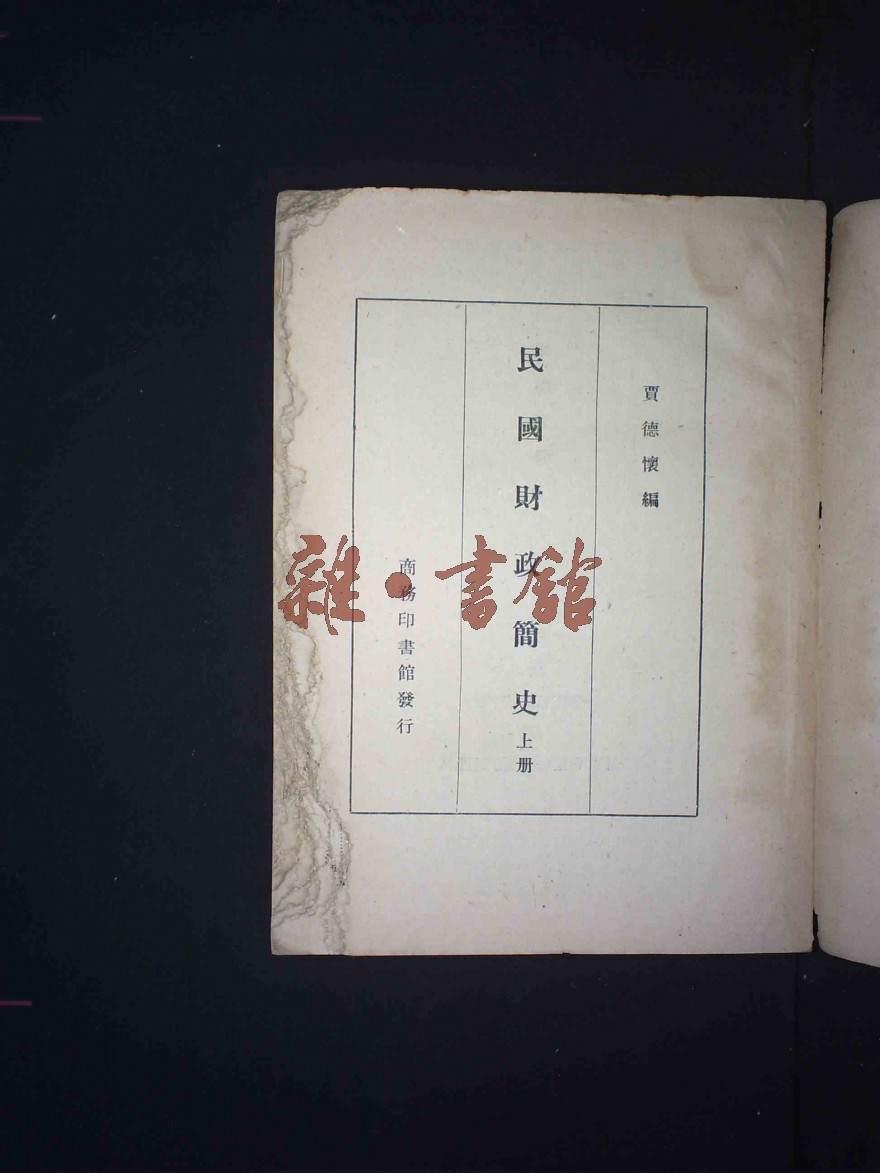 賈德懷編
民國財政簡史 上册
商務印書館發行
雜·書館